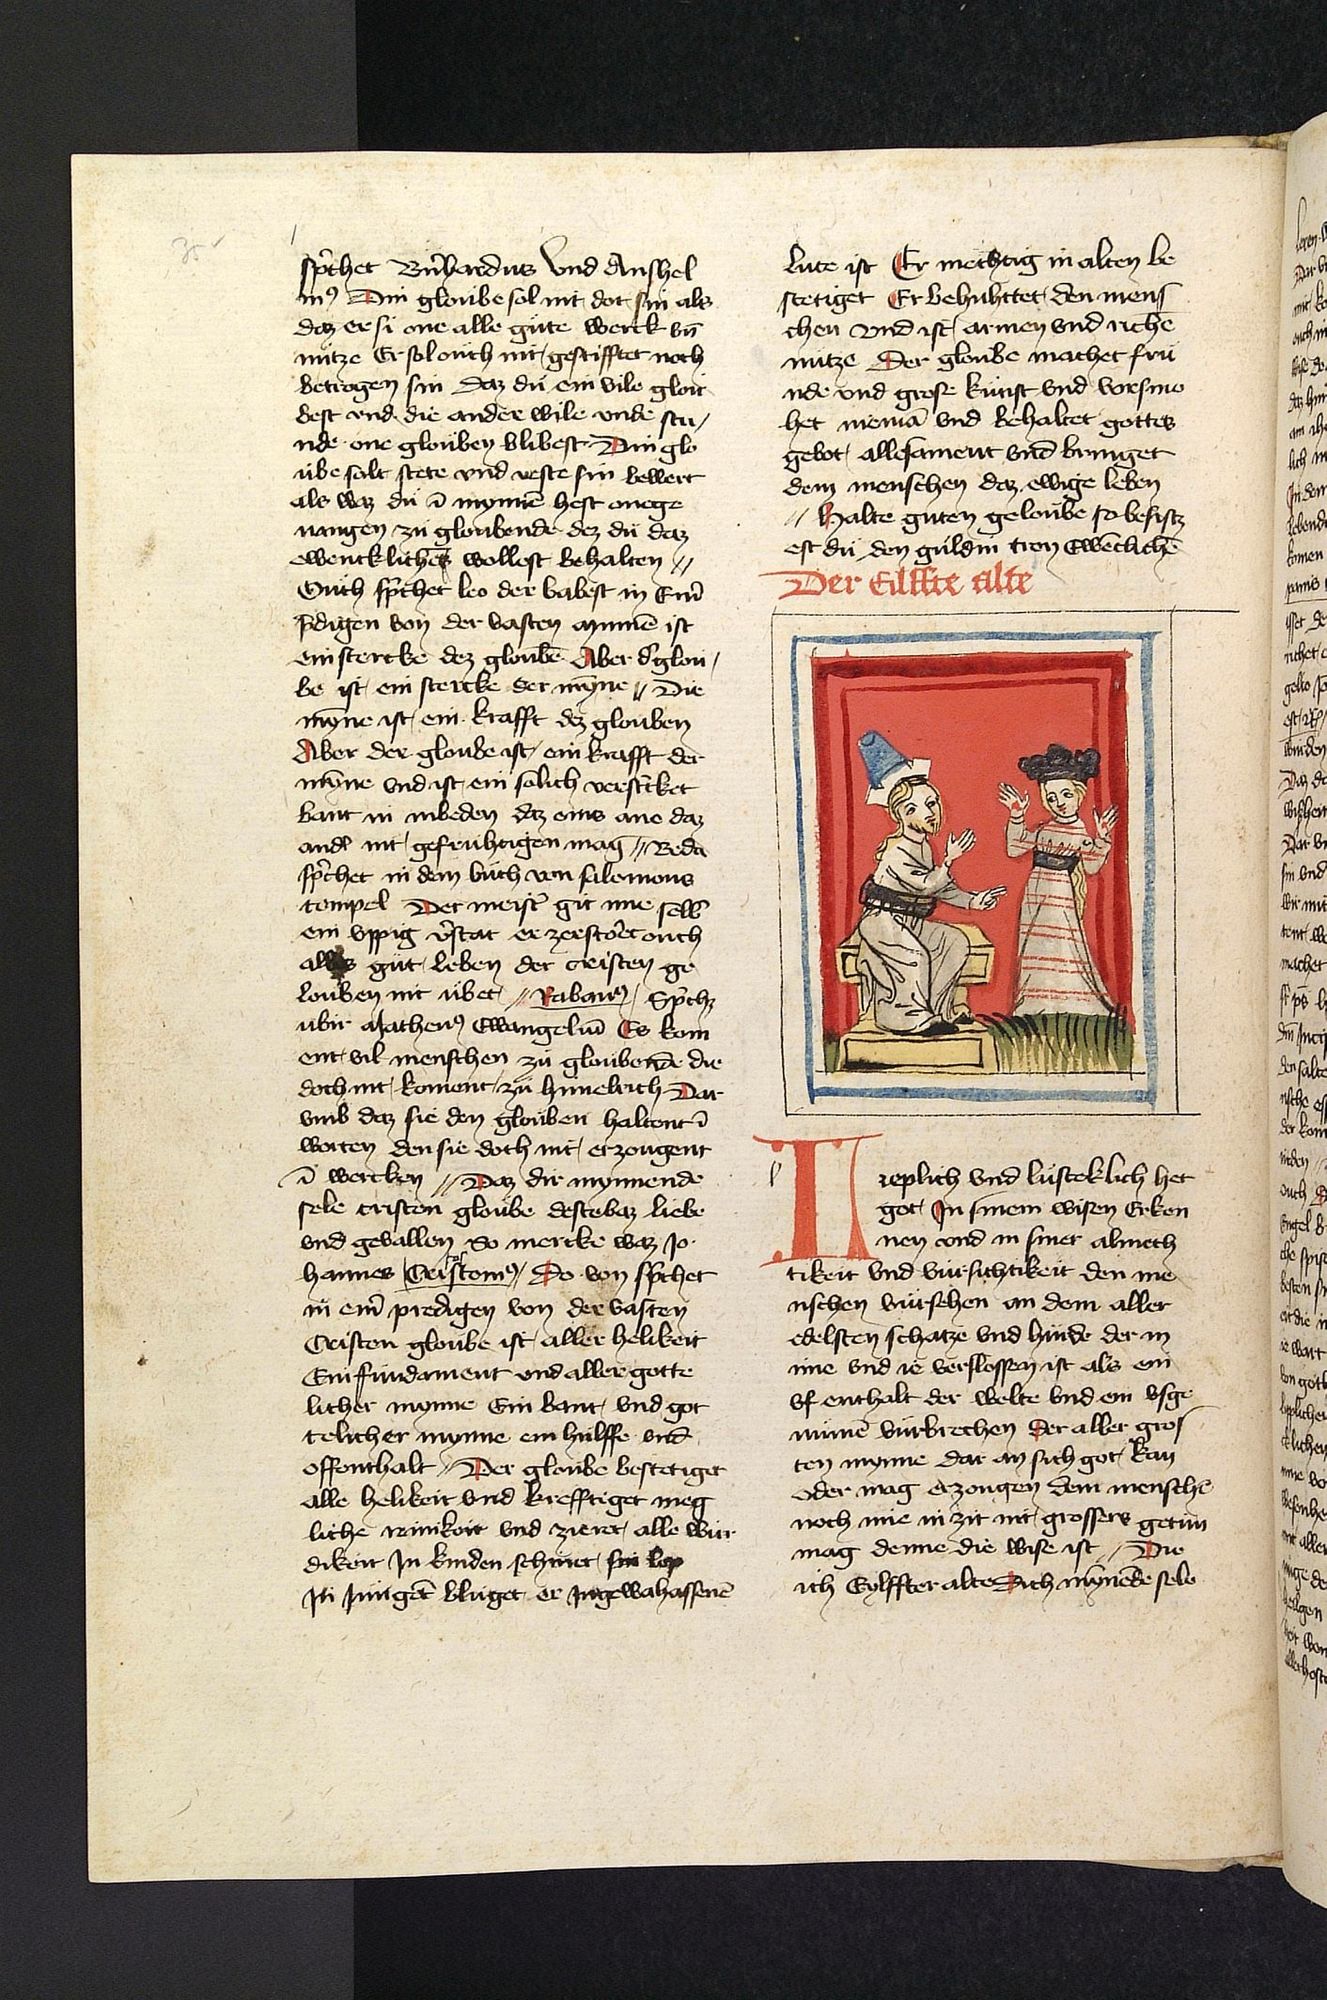 sp̃chet Bñhardus Vnd Anshel
mꝰ Din gloube sol nit dot sin als
daz er si one alle güte werck vñ
nütze Er sol ouch nit gestifftet noch
betrogen sin Daz dü ein vile glou
best vnd die ander wile vnde stu
nde one glouben blibest Din glo
übe salt stete vnd veste sin bewert
als waz dü ī mynnē hest onege
uangen zü gloubende dez dü daz
ewenckliches wollest behalten //
Ouch sp̃chet leo der babest in Eim̄
p̃digen von der vasten mynnē ist
ein stercke dez gloubē Aber d̕ glou
be ist ein stercke der mỹne // Die
mỹne ist ein krafft dez glouben
Aber der gloube ist ein krafft der
mỹne vnd ist ein solich verstr̄cket
bant in inbeden daz eins one daz
and̕ nit gefruhtigen mag // Beda
sp̃chet in dem büch von salomons
tempel Der meist̕ git ime selb̕
ein vppig v̕stat er zerstöret ouch
alles güt leben der cristen ge
louben nit übet // Rabanꝰ Sp̃chz
übir Matheuꝰ Ewangeliū Es kom
ent vil menschen zü gloubende die
doch nit koment zü himelrich Dar
vmb daz sie den glouben haltent ī
worten den sie doch nit erzougent
ī wercken // Daz dir mynnende
sele cristen gloube destebaz liebe
vnd gevallen So mercke waz Jo
hannes Crisostomꝰ Do von sp̃chet
in eim̄ predigen von der vasten
Cristen gloube ist aller helikeit
Ein fundament vnd aller gotte
licher mynne Ein bant vnd got
telicher mynne ein hülffe vnd
offenthalt // Der gloube bestetiget
alle helikeit vnd krefftiget meg
liche reinikeit vnd zieret alle wür
dikeit In kinden schinet sin lop
In jungēt blüget er In gewahassenē
lute ist Er mechtig in alten be
stetiget Er behuhttet den mens
chen vnd ist armen vnd richē
nütze Der gloube machet frü
nde vnd grose kunst vnd vorsmo
het niemā vnd behaltet gottes
gebot allesament vnd bringet
dem menschen daz ewige leben
// Halte guten geloube so besitz
est dü den güldin tron Ewēclichē
Der Eilffte alte
replich vnd lüsteklich het
got In sinem wisen Erken
nen vnd in siner almech
tikeit vnd vürsichtikeit den me
nschen vürsehen an dem aller
edelsten schatze vnd hürde der in
ime vnd ie verslossen ist als ein
vf enthalt der welte vnd ein vsge
nümē vürbrechen Der aller gros
ten mynne dar an sich got kan
oder mag erzougen dem menschē
noch nie in zit nit grossers getün
mag denne die wise ist // Die
ich Eylffter alte Dich mỹnēde sele